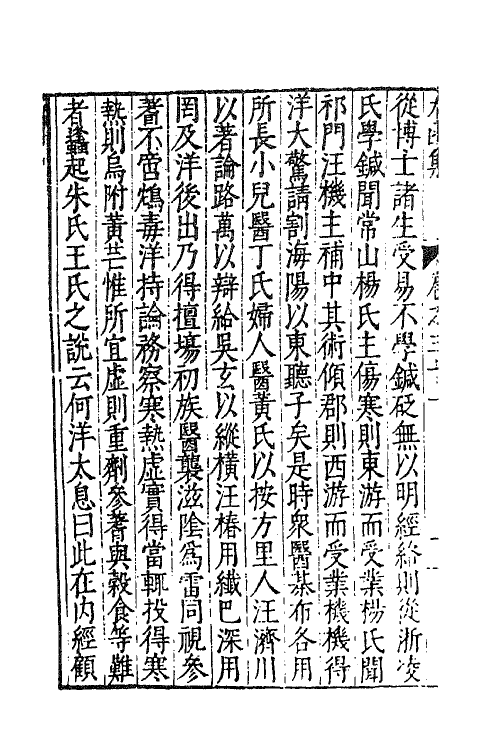 從博士諸生受易不學鍼砭無以明經絡則從浙凌
氏學鍼聞常山楊氏主傷寒則東游而受業楊氏聞
祁門汪機主補中其術傾郡則西游而受業機機得
洋大驚請割海陽以東聽子矣是時衆醫棊布各用
所長小兒醫丁氏婦人醫黃氏以按方里人汪濟川
以著論路萬以辯給吳玄以縱橫汪椿用纖巴深用
罔及洋後出乃得擅場初族醫襲滋陰爲雷同視參
蓍不啻鴆毒洋持論務察寒熱虛實得當輒投得寒
熱則烏附黃芒惟所宜虛則重劑參蓍與穀食等難
者蠭起朱氏王氏之說云何洋太息曰此在內經顧